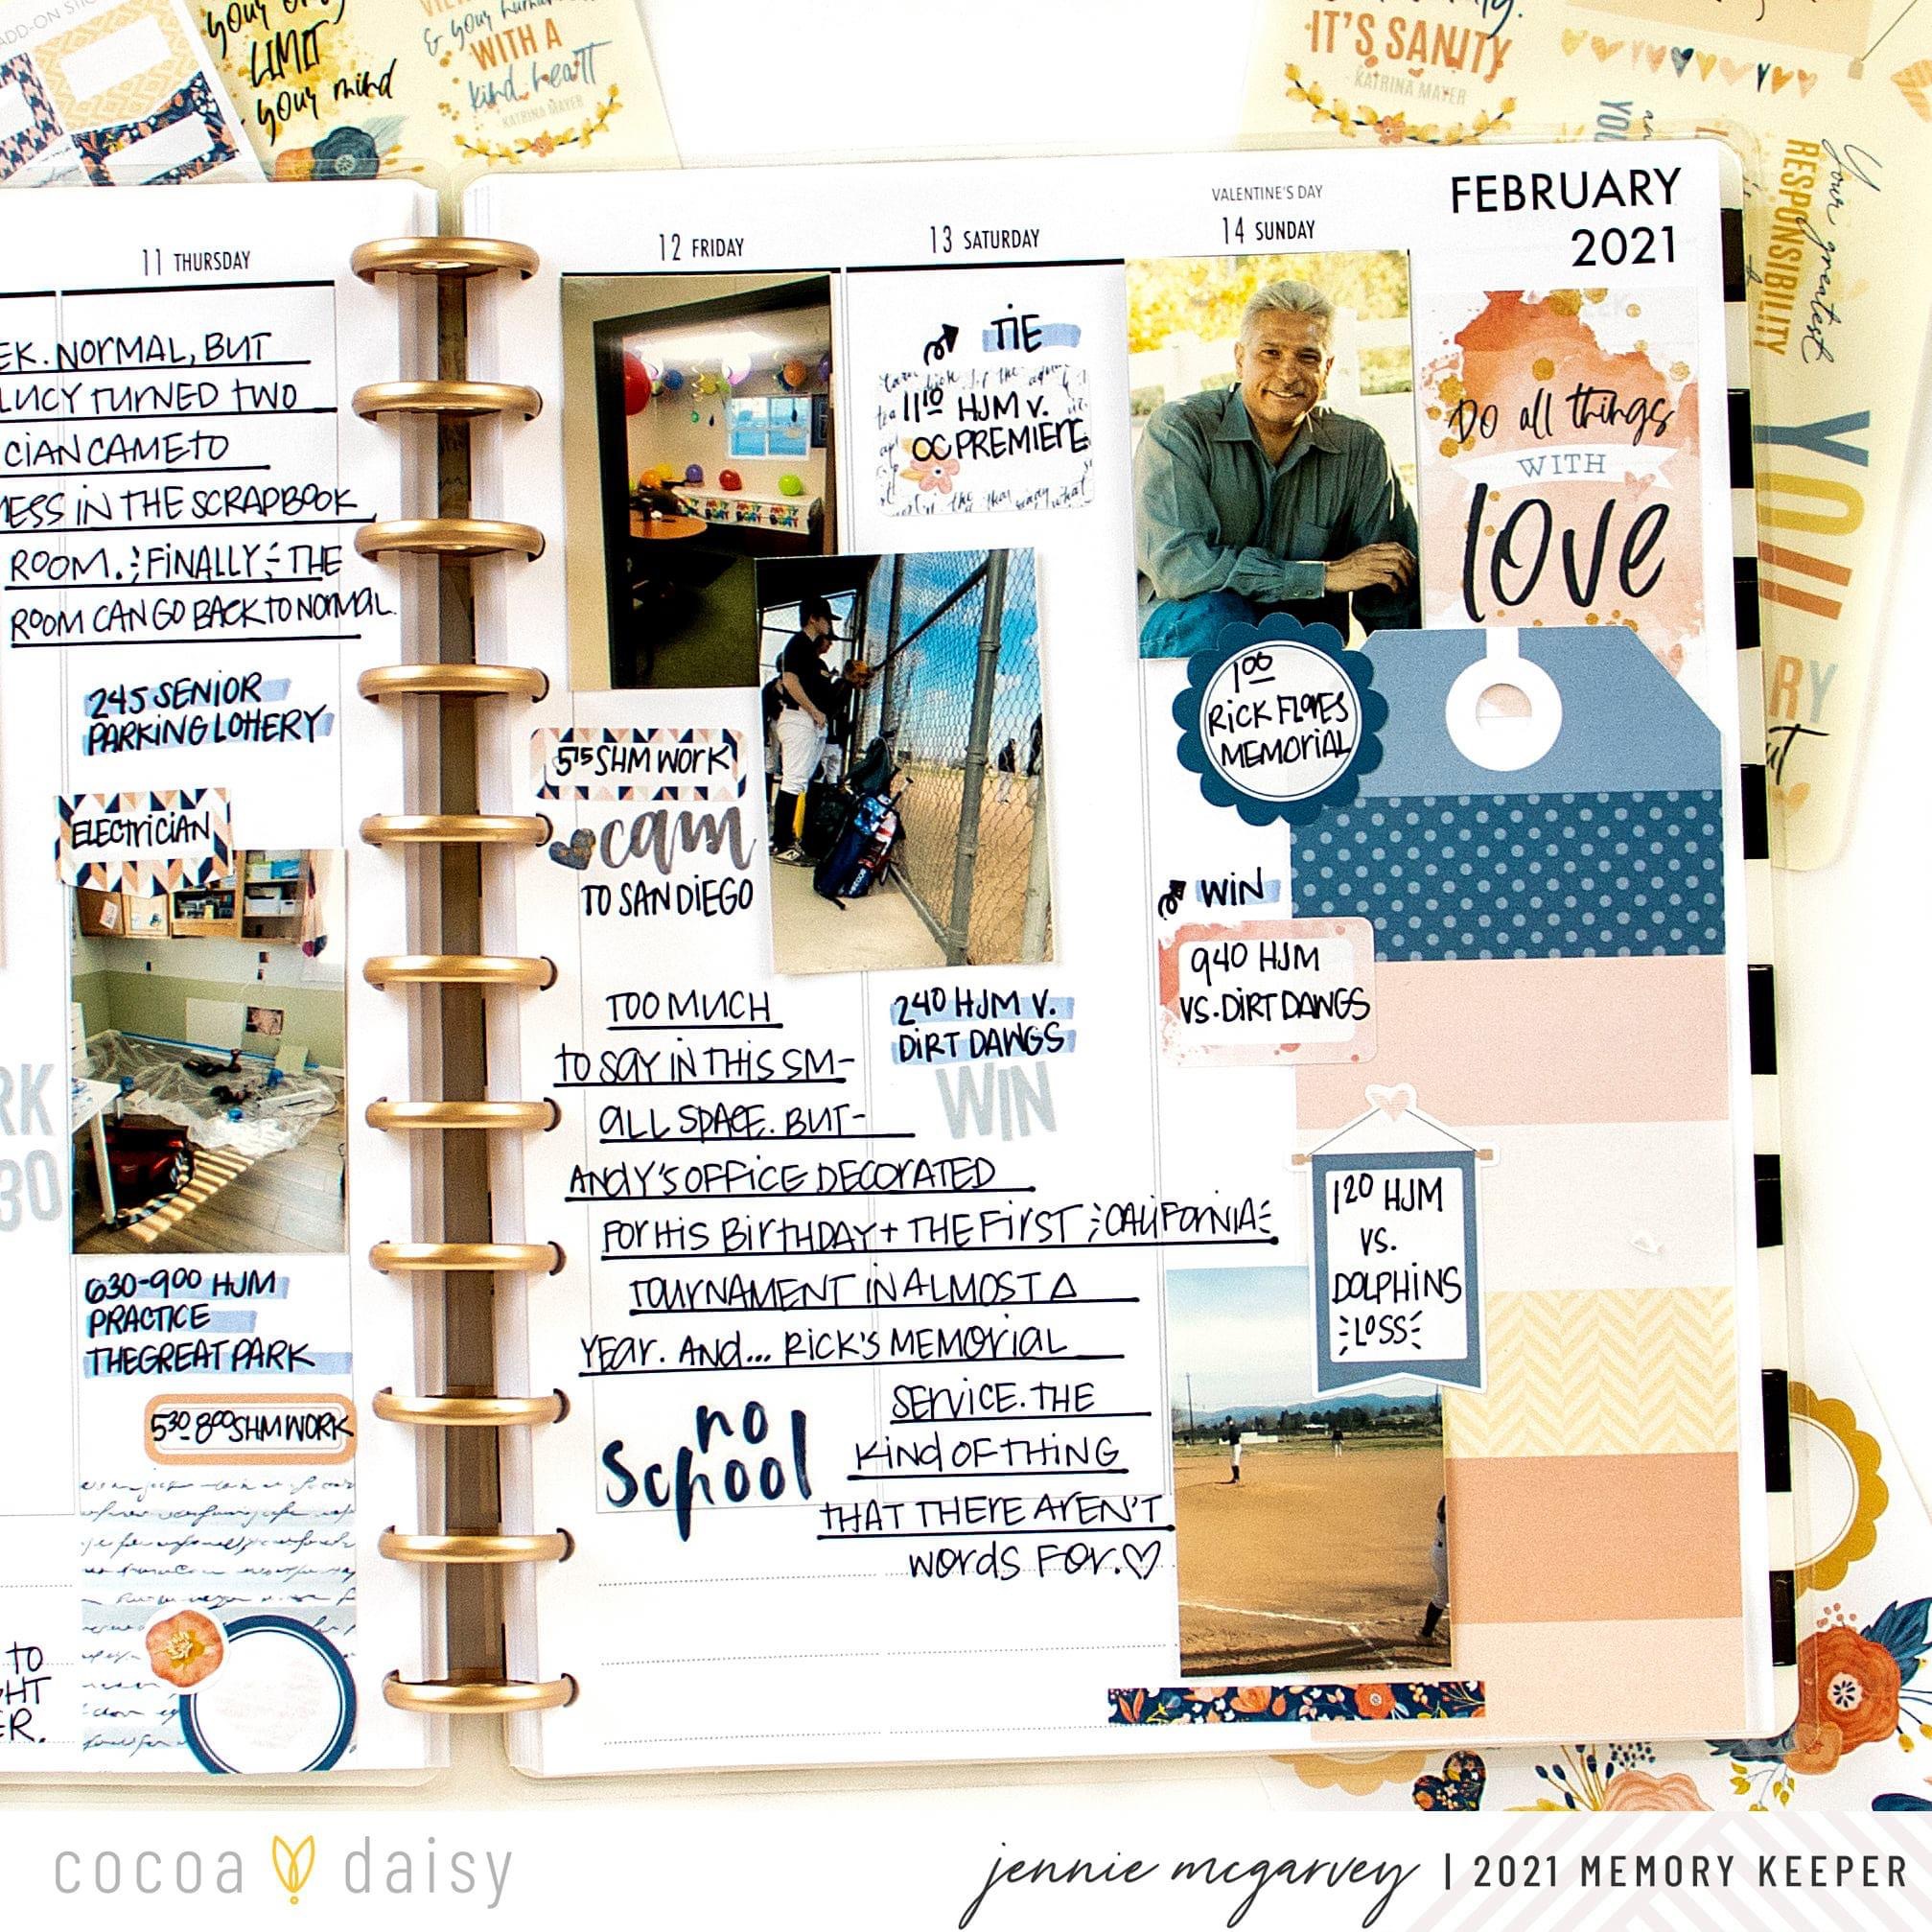 ADD-ON
your only
LIMIT
your mind
& your
WITH A
kind heart
KATRINA MAYER
IT'S SANITY
KATRINA MAYER
Your greatest
RESPONSIBILITY
YOU
RY
FEBRUARY
2021
11 THURSDAY
EK. NORMAL, BUT
LUCY TURNED TWO
CIAN CAME TO
MESS IN THE SCRAPBOOK
ROOM. FINALLY THE
ROOM CAN GO BACK TO NORMAL.
245 SENIOR
PARKING LOTTERY
ELECTRICIAN
RK
30
630-900 HJM
PRACTICE
THE GREAT PARK
530 800 SHM WORK
TO
HT
ER.
12 FRIDAY
515 SHM WORK
cam
TO SAN DIEGO
TOO MUCH
TO SAY IN THIS SM-
ALL SPACE. BUT-
ANDY'S OFFICE DECORATED
FOR HIS BIRTHDAY + THE FIRST CALIFORNIA
TOURNAMENT IN ALMOST A
YEAR. AND... RICK'S MEMORIAL
SERVICE. THE
KIND OF THING
THAT THERE AREN'T
WORDS FOR. ♡
no
School
13 SATURDAY
TIE
1110 HJM V.
OC PREMIERE
240 HJM V.
DIRT DAWGS
WIN
VALENTINE'S DAY
14 SUNDAY
Do all things
WITH
love
100
RICK FLORES
MEMORIAL
WIN
940 HJM
VS. DIRT DAWGS
120 HJM
VS.
DOLPHINS
LOSS
cocoa daisy
jennie mcgarvey | 2021 MEMORY KEEPER